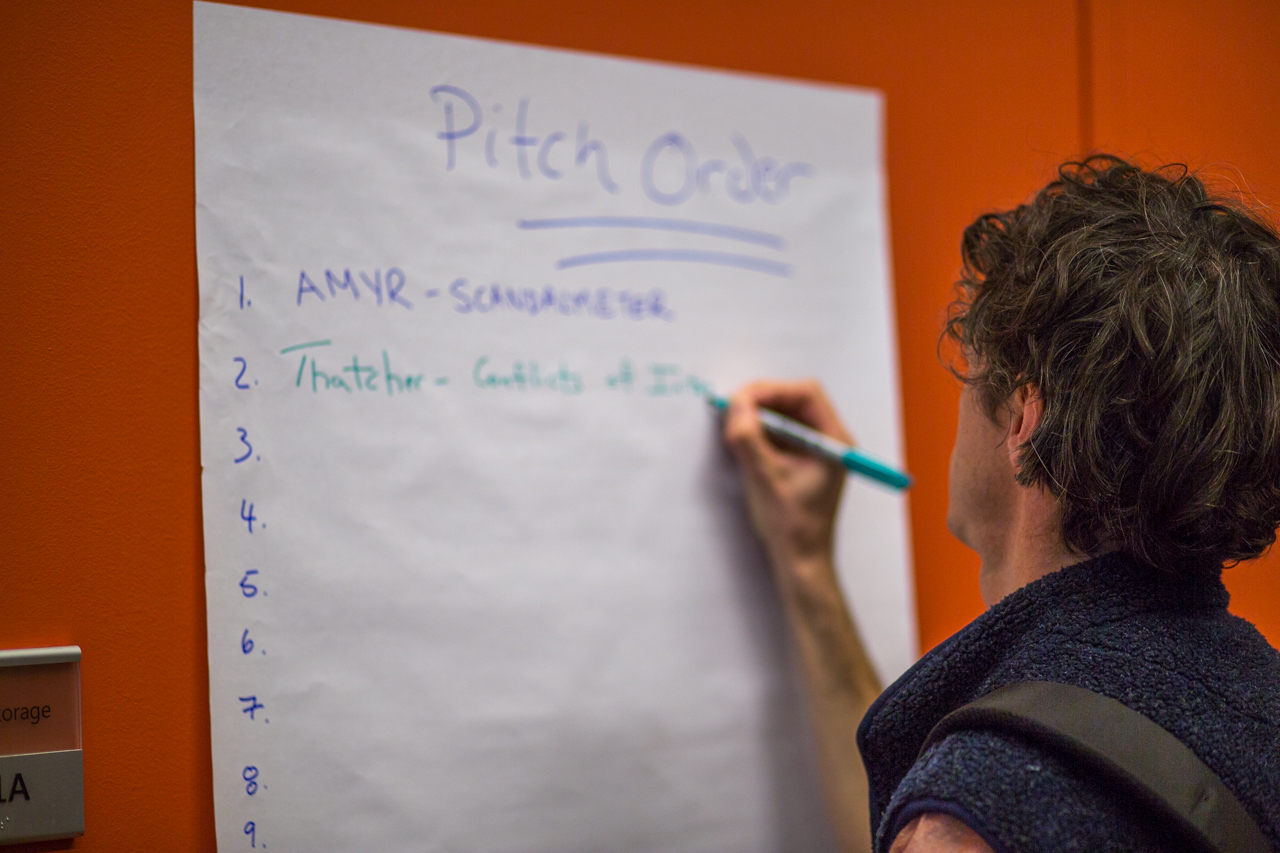 Pitch Order
1. AMYR - SCANDALMETER
2. Thatcher - Conflicts of
3.
4.
5.
6.
7.
8.
9.
torage
1A